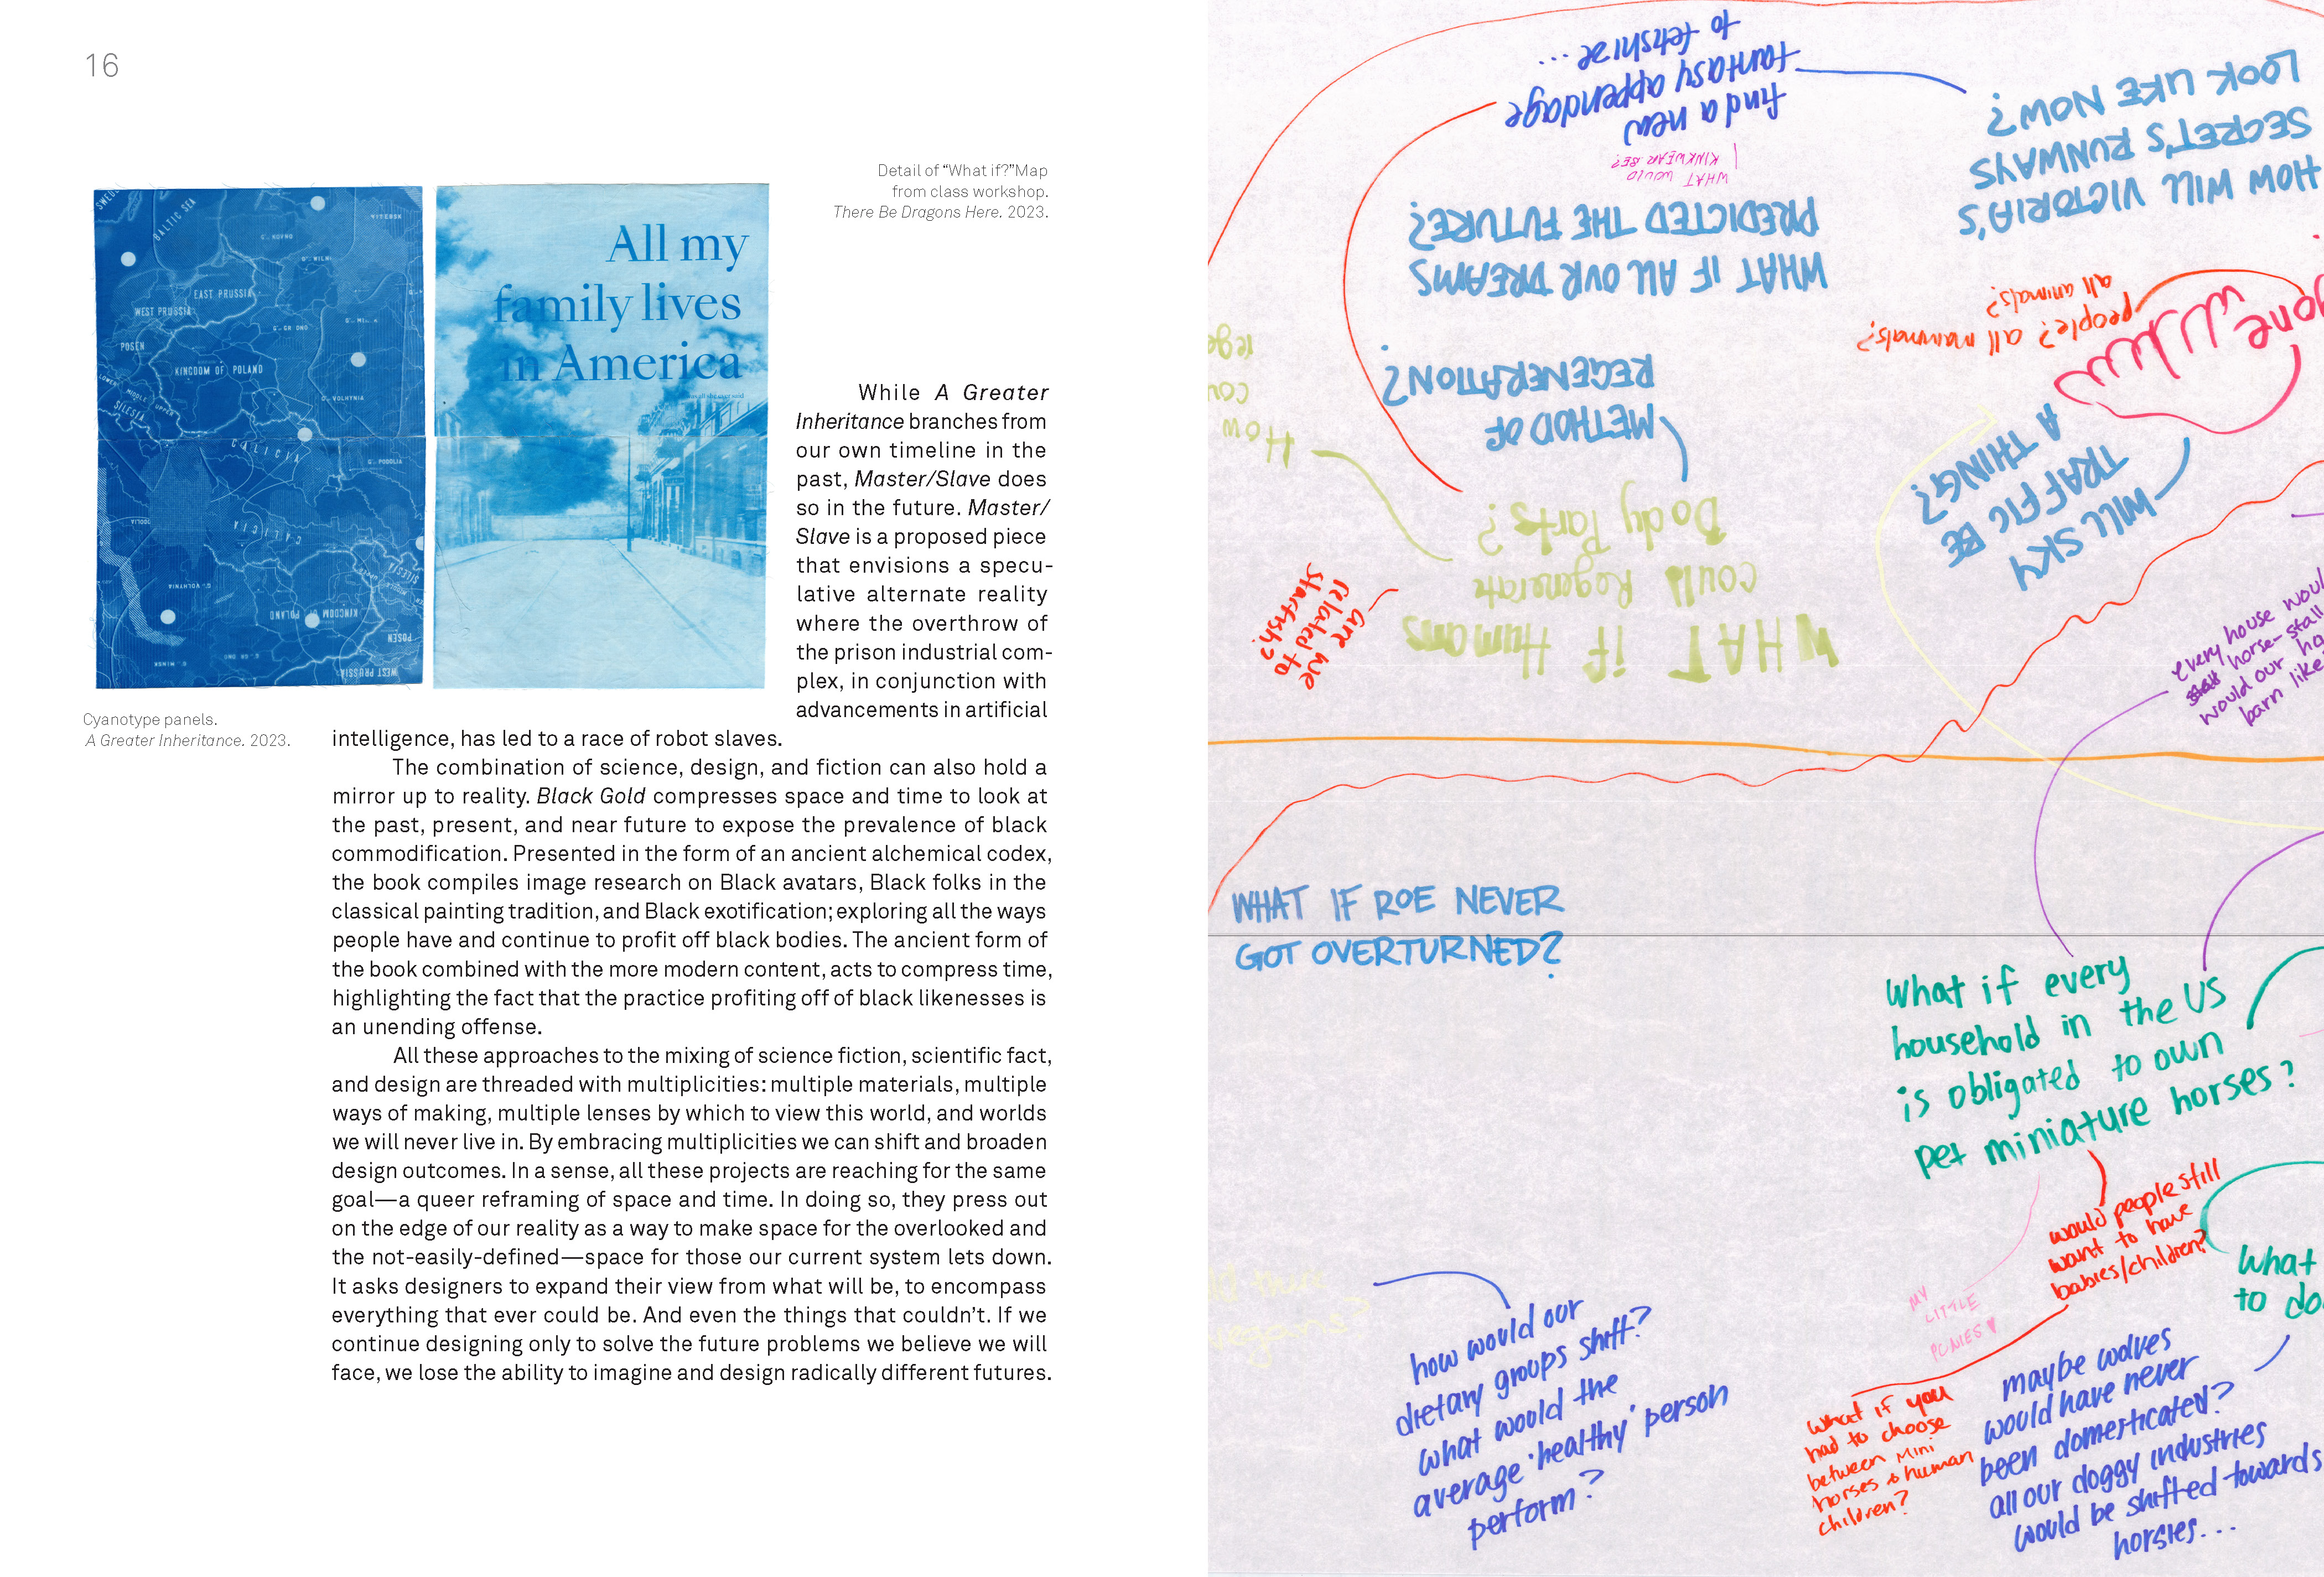 16
Detail of “What if?”Map
from class workshop.
There Be Dragons Here. 2023.
BALTIC SEA
EAST PRUSSIA
WEST PRUSSIA
POSEN
KINGDOM OF POLAND
SILESIA
G. VOLHYNIA
G. PODOLIA
GALICIA
GALICIA
SILESIA
G. VOLHYNIA
KINGDOM OF POLAND
POSEN
G. MINSK
WEST PRUSSIA
All my
family lives
in America
Cyanotype panels.
A Greater Inheritance. 2023.
While A Greater
Inheritance branches from
our own timeline in the
past, Master/Slave does
so in the future. Master/
Slave is a proposed piece
that envisions a specu-
lative alternate reality
where the overthrow of
the prison industrial com-
plex, in conjunction with
advancements in artificial
intelligence, has led to a race of robot slaves.
The combination of science, design, and fiction can also hold a
mirror up to reality. Black Gold compresses space and time to look at
the past, present, and near future to expose the prevalence of black
commodification. Presented in the form of an ancient alchemical codex,
the book compiles image research on Black avatars, Black folks in the
classical painting tradition, and Black exotification; exploring all the ways
people have and continue to profit off black bodies. The ancient form of
the book combined with the more modern content, acts to compress time,
highlighting the fact that the practice profiting off of black likenesses is
an unending offense.
All these approaches to the mixing of science fiction, scientific fact,
and design are threaded with multiplicities: multiple materials, multiple
ways of making, multiple lenses by which to view this world, and worlds
we will never live in. By embracing multiplicities we can shift and broaden
design outcomes. In a sense, all these projects are reaching for the same
goal—a queer reframing of space and time. In doing so, they press out
on the edge of our reality as a way to make space for the overlooked and
the not-easily-defined—space for those our current system lets down.
It asks designers to expand their view from what will be, to encompass
everything that ever could be. And even the things that couldn’t. If we
continue designing only to solve the future problems we believe we will
face, we lose the ability to imagine and design radically different futures.
find a new
fantasy appendage
to fetishize...
WHAT WOULD
KINKWEAR BE?
HOW WILL VICTORIA'S
SECRET'S RUNWAYS
LOOK LIKE NOW?
WHAT IF ALL OUR DREAMS
PREDICTED THE FUTURE?
people? all mammals?
all animals?
METHOD OF
REGENERATION?
How
WILL SKY
TRAFFIC BE
A THING?
WHAT if Humans
could Regenerate
Body Parts?
are we
related to
starfish?
every house would
horse-stall
would our
barn like
WHAT IF ROE NEVER
GOT OVERTURNED?
What if every
household in the US
is obligated to own
pet miniature horses?
would people still
want to have
babies/children?
MY
LITTLE
PONIES
What
to do
how would our
dietary groups shift?
what would the
average 'healthy' person
perform?
What if you
had to choose
between mini
horses & human
children?
maybe wolves
would have never
been domesticated?
all our doggy industries
would be shifted towards
horsies...